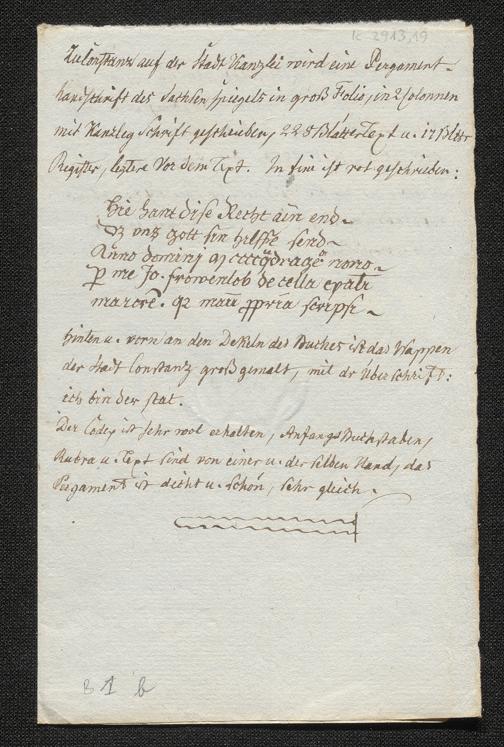 K 2913,19
Zu Constanz auf der Stadt Kanzlei wird eine Pergament-
handschrift des Sachsenspiegels in groß Folio, in 2 Colonnen
mit Kanzley Schrift geschrieben, 228 Blätter Text u. 17 Blätter
Register, leztere vor dem Text. In fine ist rot geschrieben:
Hie hant dise Recht ain end
Dz vnz gott sin helffe send
Anno dominj
ꝑ me Jo. frowenlob de cella
scripsi
hinten u. vorn an den Dekeln des Buches ist das Wappen
der Stadt Constanz groß gemalt, mit der Überschrift:
ich bin der stat.
Der Codex ist sehr wol erhalten, Anfangsbuchstaben,
Rubra u. Text sind von einer u. derselben Hand, das
Pergament ist dicht u. schön, sehr gleich.
B 1 b